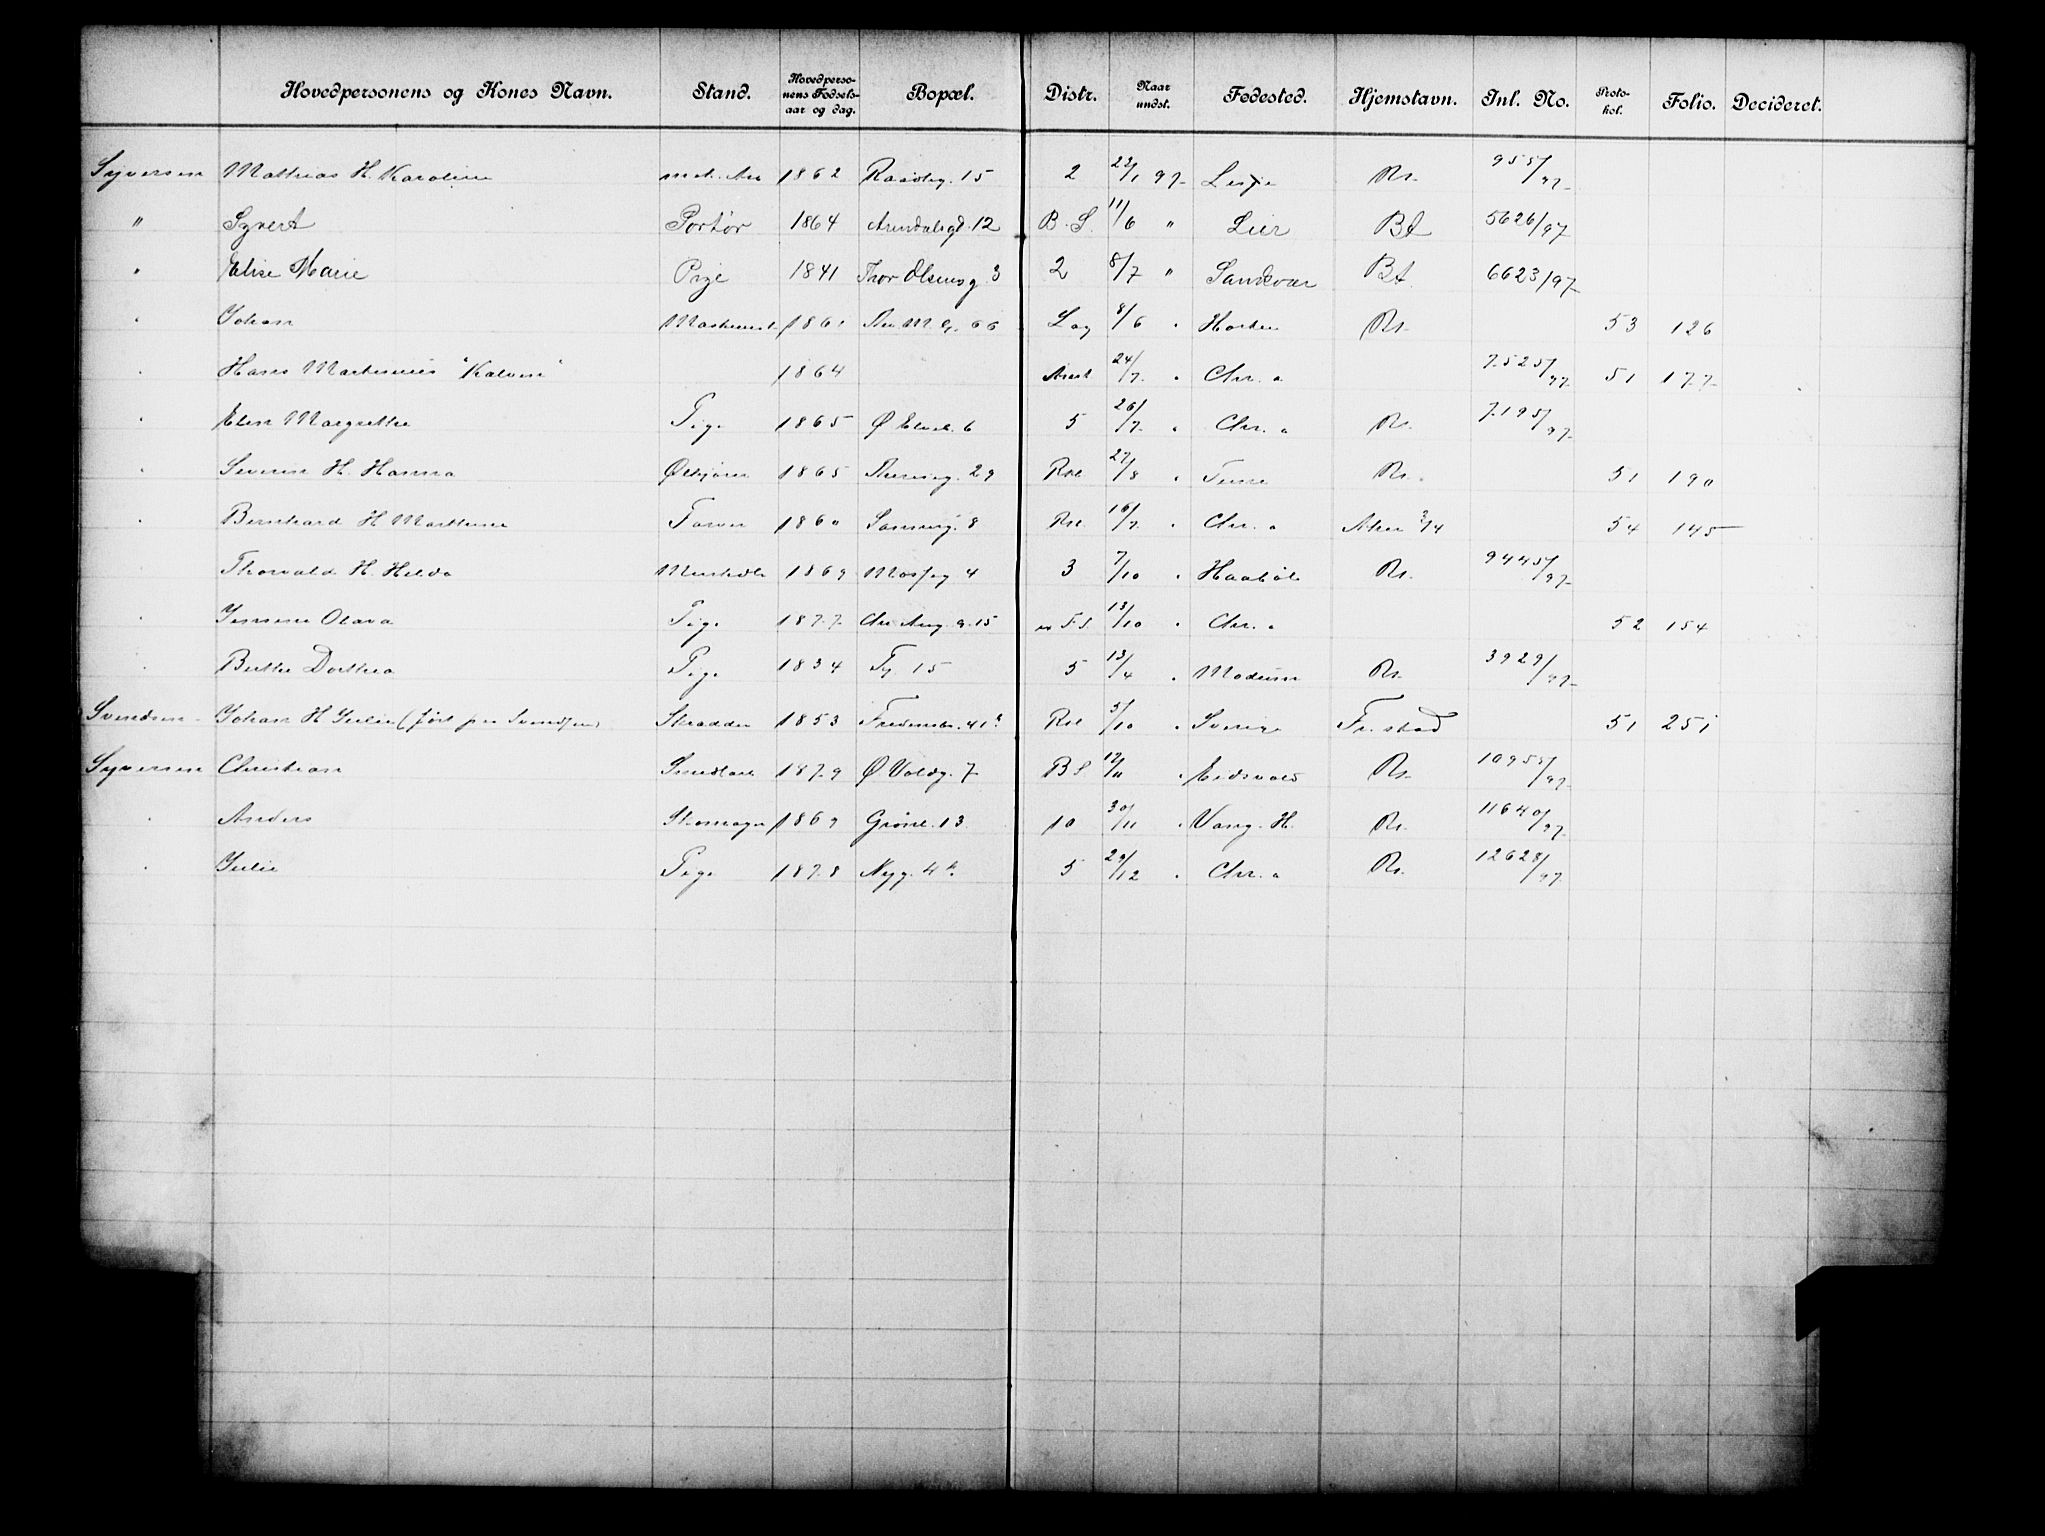 Hovedpersonens og Kones Navn. Stand. Hovedpersonens Fødselsaar og dag. Bopæl. Distr. Naar undst. Fødested. Hjemstavn. Inl. No. Protokol. Folio. Decideret.
Syversen Mathias H. Karoline 1862 15 2 22/1 97 Lesje Rs. 955/97
" Syvert Portør 1864 Arendalsgd. 12 B. S. 11/6 " Lier Bt 5626/97
" Elise Marie Pige 1841 Thor Olsensg. 3 2 8/7 " Sandsvær Bt. 6623/97
" Johan Maskinist 1861 66 Log 8/6 " Horten Rs. 53 126
" Hans Martinius "Kalven" 1864 Arest 24/7 " Chr. a 7525/97 51 177
" Elen Margrethe Pige 1865 Ø Elveb. 6 5 26/7 " Chr. a Rs. 7195/97
" Severin H. Hanna 1865 29 Rst 27/8 " Tune Rs. 51 190
" Bernhard H. Marthine 1860 8 Rst 16/7 " Chr. a Aker 3/14 54 145
" Thorvald H. Hilda 1869 Mosseg 4 3 7/10 " Haabøl Rs. 9445/97
" Jensine Olava Pige 1877 Chr Aug. g. 15 F.S. 13/10 " Chr. a 52 154
" Berthe Dorthea Pige 1834 Ty. 15 5 13/4 " Modum Rs. 3929/97
Svendsen Johan H Julie (ført pr Svendsen) Skrædder 1853 Fredensbr. 41 Rst 5/10 " Sverige Fr. stad 51 251
Syversen Christian 1879 Ø Voldg. 7 B S 12/11 " Eidsvold Rs. 10955/97
" Anders Skomager 1869 Grønl. 13 10 30/11 " Vang. H. Rs. 11640/97
" Julie Pige 1878 Nyg. 4 5 29/12 " Chr. a Rs. 12628/97